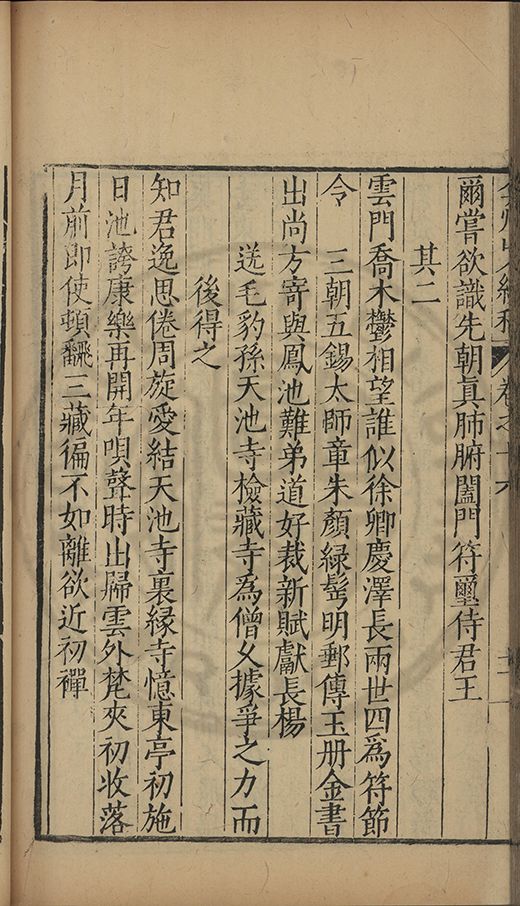 卷之十六
爾嘗欲識先朝眞肺腑闔門符璽侍君王
其二
雲門喬木鬱相望誰似徐卿慶澤長兩世四爲符節
令　三朝五錫太師章朱顏綠髩明郵傳玉册金書
出尚方寄與鳳池難弟道好裁新賦獻長楊
送毛豹孫天池寺檢藏寺爲僧乆據爭之力而
後得之
知君逸思倦周旋愛結天池寺裏緣寺憶東亭初施
日池誇康樂再開年唄聲時出歸雲外梵夾初收落
月前即使頓飜三藏徧不如離欲近初禪